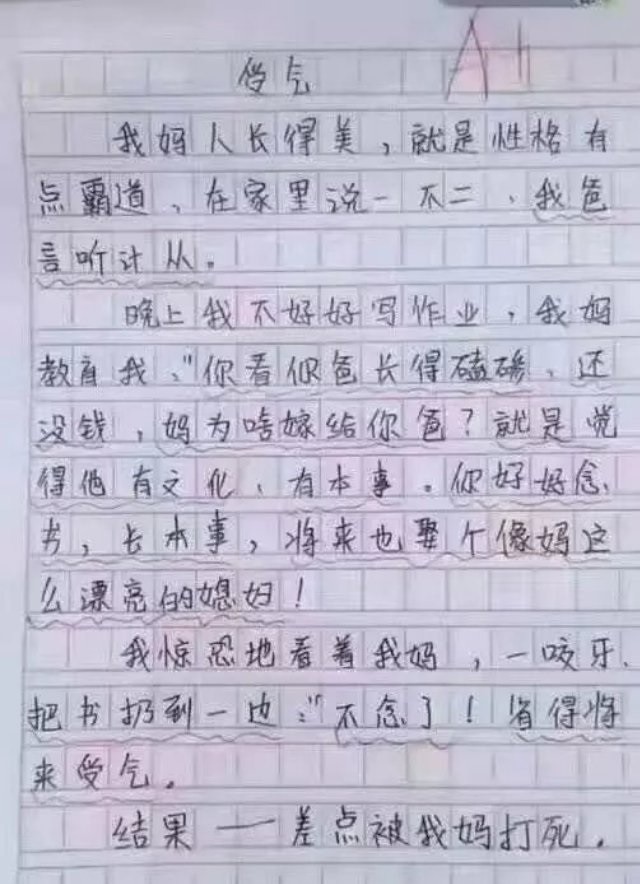 受气
我妈人长得美，就是性格有
点霸道、在家里说一不二、我爸
言听计从。
晚上我不好好写作业，我妈
教育我："你看你爸长得磕碜、还
没钱，妈为啥嫁给你爸？就是觉
得他有文化、有本事。你好好念
书，长本事，将来也娶个像妈这
么漂亮的媳妇！
我惊恐地看着我妈，一咬牙、
把书扔到一边："不念了！省得将
来受气。
结果——差点被我妈打死。